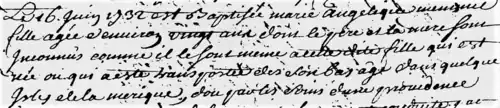 Le 16 Juin 1732 est Baptisée marie Angelique memmie
fille agée d'environ vingt ans dont le pere et la mere sont
Inconnus comme il le sont meme a cette fille qui est
née ou qui a esté transportée des son bas age dans quelque
Isles de la merique, d'ou par les soins d'une providence